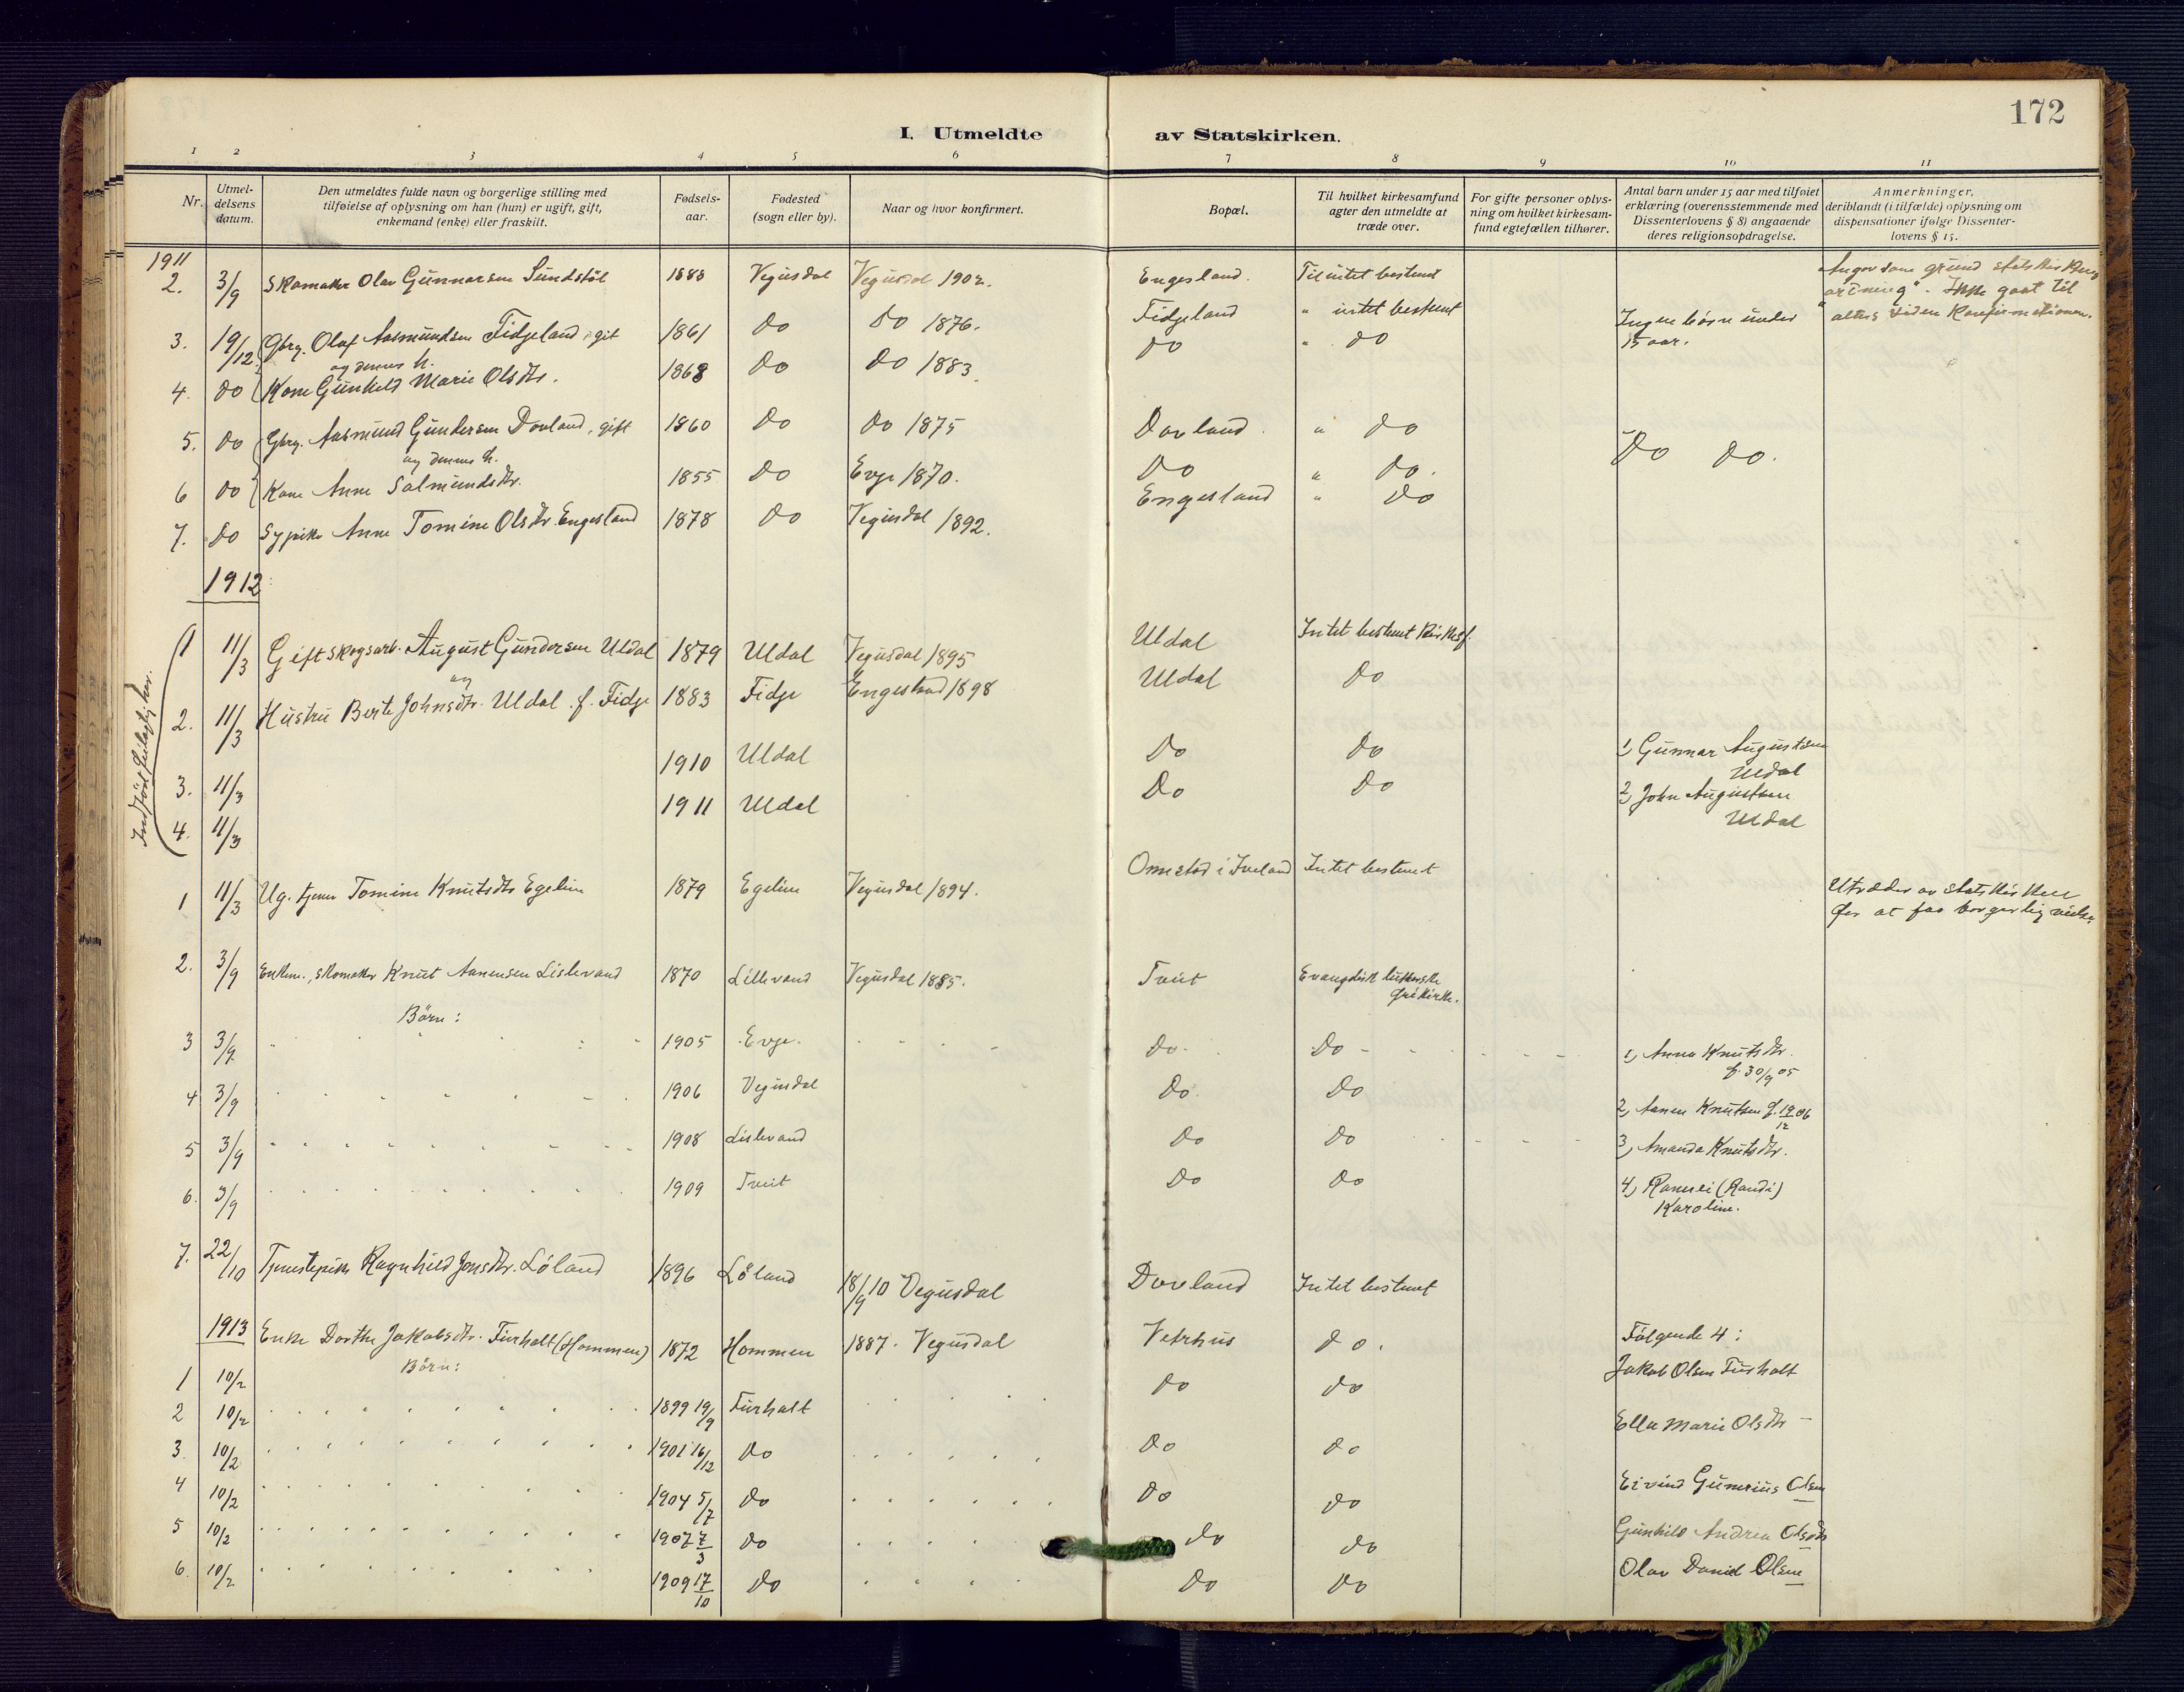 172
I. Utmeldte av Statskirken.
1 2 3 4 5 6 7 8 9 10 11
Nr.
Utmel-
delsens
datum.
Den utmeldtes fulde navn og borgerlige stilling med
tilføielse af oplysning om han (hun) er ugift, gift,
enkemand (enke) eller fraskilt.
Fødsels-
aar.
Fødested
(sogn eller by).
Naar og hvor konfirmert.
Bopæl.
Til hvilket kirkesamfund
agter den utmeldte at
træde over.
For gifte personer oplys-
ning om hvilket kirkesam-
fund egtefællen tilhører.
Antal barn under 15 aar med tilføiet
erklæring (overensstemmende med
Dissenterlovens § 8) angaaende
deres religionsopdragelse.
Anmerkninger,
deriblandt (i tilfælde) oplysning om
dispensationer ifølge Dissenter-
lovens § 15.
1911
2. 3/9 Skomaker Olav Gunnarsen Sundstöl 1888 Vegusdal Vegusdal 1902. Engesland. Til intet bestemt
Angav som grund statskirkens
ordning". Ikke gaat til
alters siden Konfirmationen.
3. 19/12 Gbrg. Olaf Aasmundsen Fidjeland gift 1861 do do 1876. Fidjeland " intet bestemt Ingen börn under
15 aar.
og dennes h.
4. do Kone Gunhild Marie Olsdtr. 1868 do do 1883. do " do
5. do Gbrg. Aasmund Gundersen Dovland, gift 1860 do do 1875 Dovland. " do Do do.
og dennes h.
6 do Kone Anne Salmundsdtr. 1855 do Evje 1870. Do " do.
7. do Sypike Anne Tomine Olsdtr. Engesland 1878 do Vegusdal 1892. Engesland " do
1912
Indført feilagtig her.
1 11/3 Gift skogsarb. August Gundersen Uldal 1879 Uldal Vegusdal 1895 Uldal Intet bestemt Kirkesf.
og
2. 11/3 Hustru Berte Johnsdtr. Uldal f. Fidje 1883 Fidje Engesland 1898 Uldal do
3. 11/3 1910 Uldal Do do 1) Gunnar Augustsen
Uldal
4. 11/3 1911 Uldal Do do 2) John Augustsen
Uldal
1 11/3 Ug. tjener Tomine Knutsdtr Egelien 1879 Egelien Vegusdal 1894. Omestad i Iveland Intet bestemt
Utræder av statskirken
for at faa borgerlig vielse.
2. 3/9 Enkem., skomaker Knut Aanensen Lislevand 1870 Lillevand Vegusdal 1885. Tveit Evangelisk lutherske
frikirke.
Börn:
3 3/9 1905 Evje. do. Do 1) Anna Knutsdtr.
f. 30/9 05
4 3/9 1906 Vegusdal do. Do 2) Aanen Knutsen f. 19/12 06
5 3/9 1908 Lislevand do do 3) Amanda Knutsdtr.
6. 3/9 1909 Tveit do do 4) Ranvei (Randi)
Karoline.
7. 22/10 Tjenestepike Ragnhild Jonsdtr. Löland 1896 Löland 18/9 10 Vegusdal Dovland Intet bestemt
1913 Enke Dorthe Jakobsdtr. Furholt (Hommen) 1872 Hommen 1887. Vegusdal Vetrhus do. Følgende 4:
Börn:
1 10/2 do do Jakob Olsen Furholt
2 10/2 1899 19/9 Furholt Ella Marie Olsdtr
3. 10/2 1901 16/12 do do do
4 10/2 1904 5/7 do do do Eivind Gunerius Olsen
5 10/2 1907 7/3 do do do Gunhild Andrea Olsdtr
6. 10/2 1909 17/10 do do do Olav Daniel Olsen